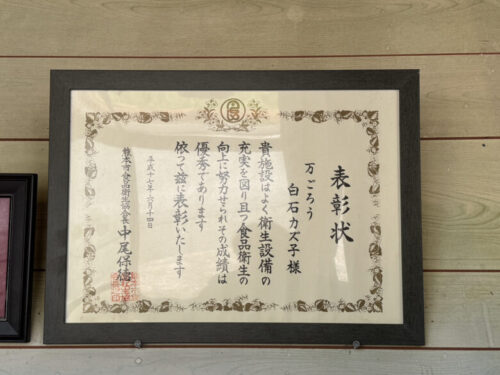 表彰状
万ごろう
白石カズ子様
貴施設はよく衛生設備の
充実を図り且つ食品衛生の
向上に努力せられその成績は
優秀であります
依って茲に表彰いたします
平成十七年六月十四日
熊本市食品衛生協会長 中尾保徳